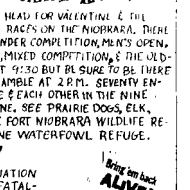 HEAD FOR VALENTINE & THE
RACES ON THE NIOBRARA. THERE
NDER COMPETITION, MEN'S OPEN,
, MIXED COMPETITION, & THE OLD-
T 9:30 BUT BE SURE TO BE THERE
AMBLE AT 2 P.M. SEVENTY EN-
E & EACH OTHER IN THE NINE
NE. SEE PRAIRIE DOGS, ELK,
FORT NIOBRARA WILDLIFE RE-
NE WATERFOWL REFUGE.
Bring 'em back
ALIVE
IATION
FATAL-